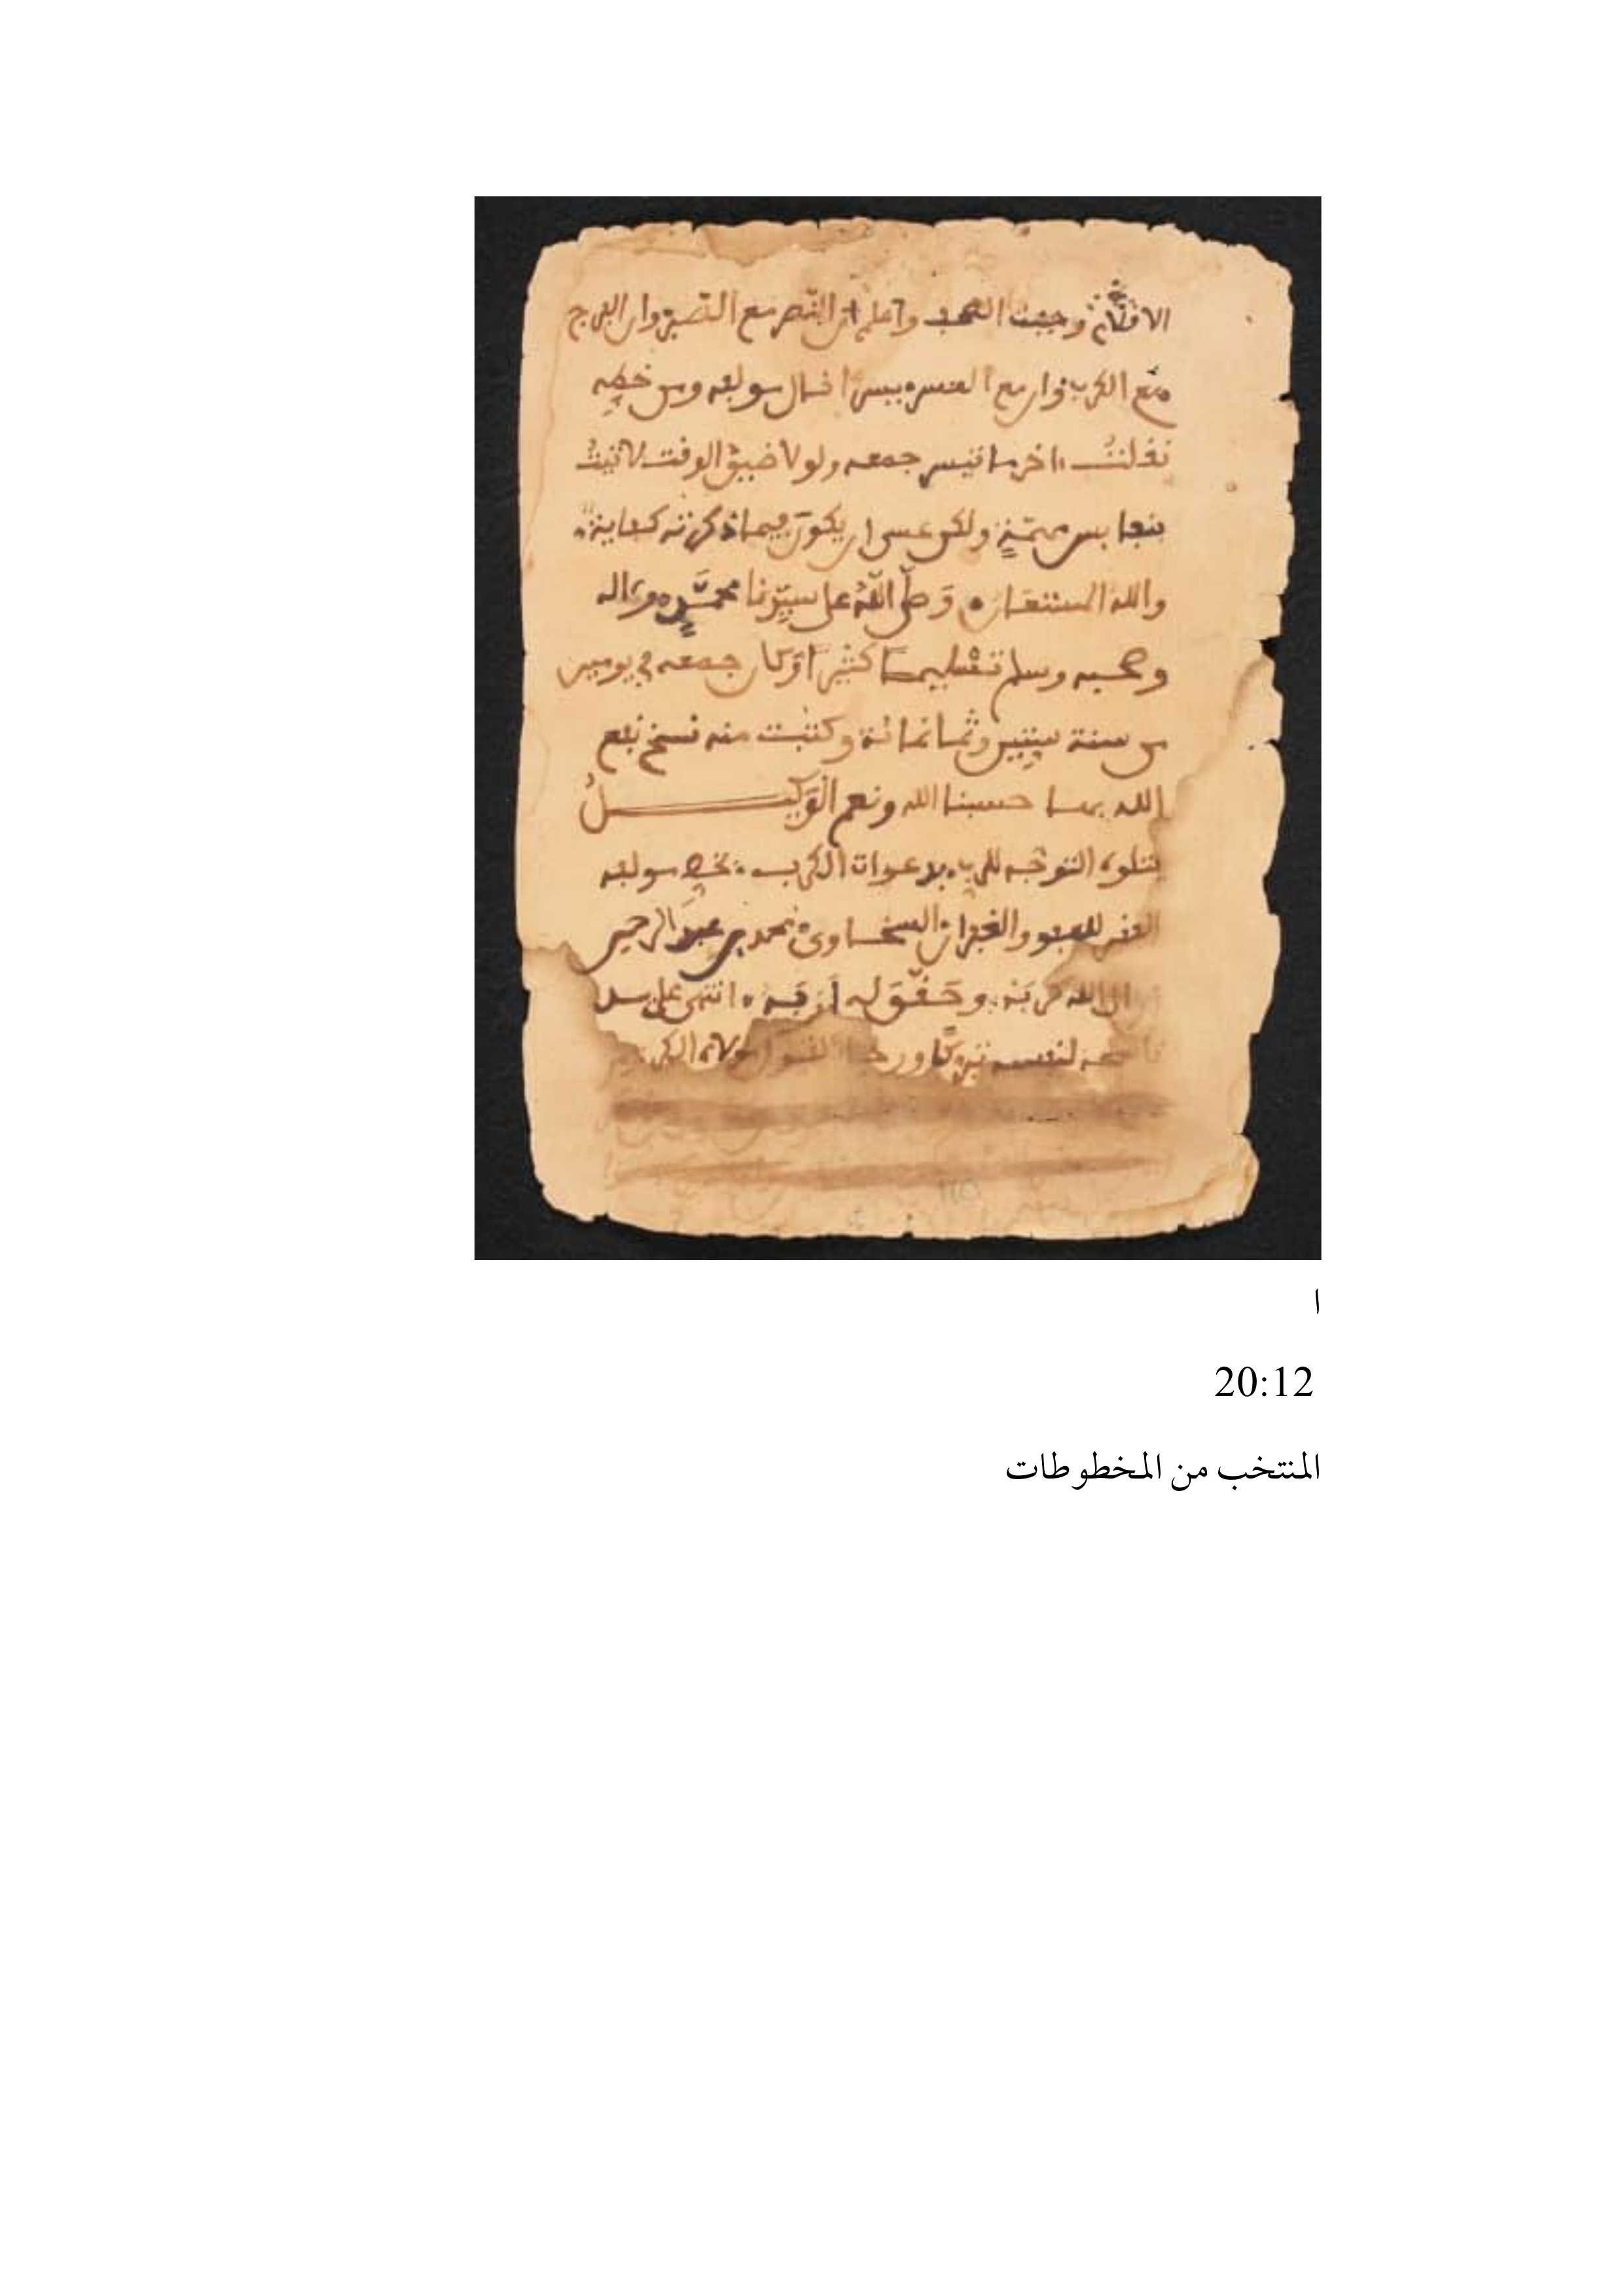 الاقلام وجفت الصحف واعلم ان النصر مع الصبر وان الفرج
مع الكرب وان مع العسر يسرًا قال مولفه ومن خطه
نقلتُ اخر ما تيسر جمعه ولولا ضيق الوقت لاتيتُ
بنفايس مهمّةٍ ولكن عسى ان يكونَ فيما ذكرته كفاية
والله المستعان وَصلّى اللّهُ على سيّدنا محمّدٍ وءاله
وصحبه وسلم تسليمًا كثيرًا وَكان جمعه في يومين
من سنة ستين وثمانمائة وكتبت منه نسخ نفع
الله بها حسبنا الله ونعم الْوَكيلُ
يتلوه التوجّه للرب بدعوات الكرب بخط مولفه
للعفو والغفران السخاوي محمد بن عبد الرحمن
الله كربَه وحَقّقَ له انتهى على يد
لنفسه
ا
20:12
المنتخب من المخطوطات